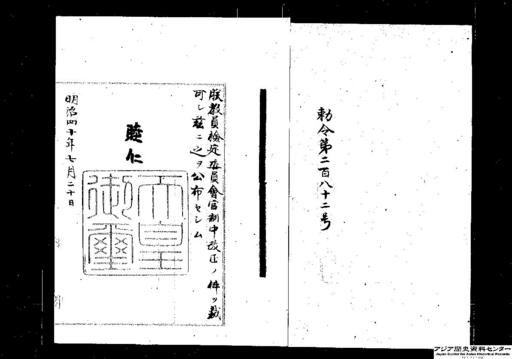 勅令第二百八十二号
朕教員檢定委員會官制中改正ノ件ヲ裁
可シ茲ニ之ヲ公布セシム
睦仁
天皇御璽
明治四十年七月二十日
アジア歴史資料センター
Japan Center for Asian Historical Records